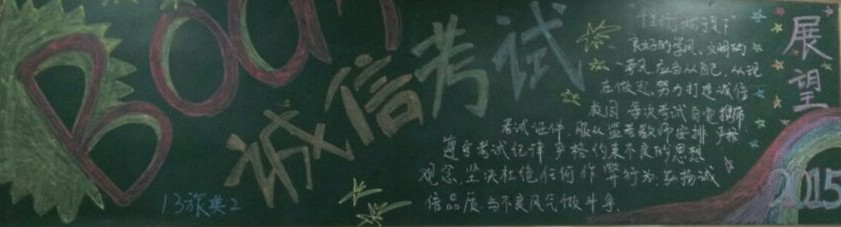 Boom
诚信考试
13旅英2
"千里行,始于足下"
良好的学风、文明的
考风,应当从自己,从现
在做起,努力打造诚信
校园 每次考试自觉携带
考试证件,服从监考教师安排 严格
遵守考试纪律 严格约束不良的思想
观念,坚决杜绝任何作弊行为,弘扬诚
信品质,与不良风气做斗争.
展望
2015